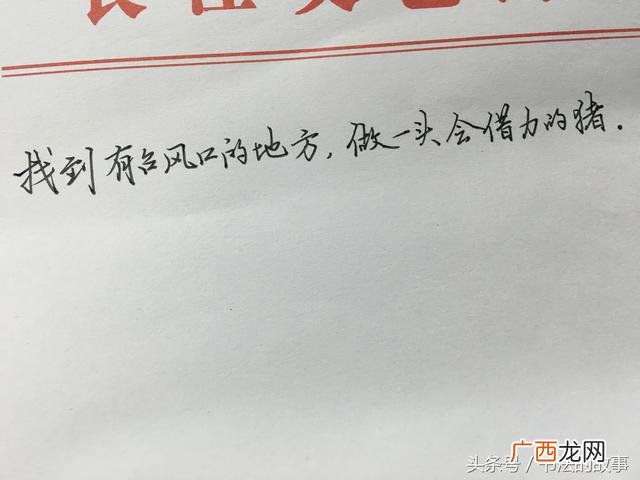 找到有台风口的地方，做一头会借力的猪．
广西龙网
头条号／书法的故事